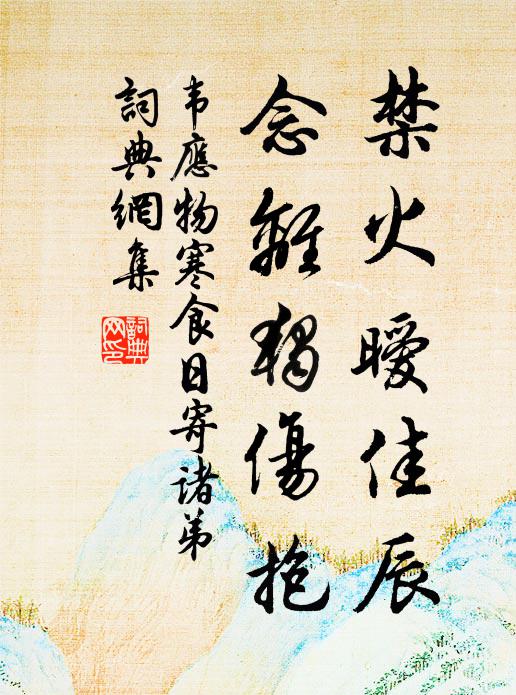 禁火曖佳辰
念離獨傷抱
韦應物寒食日寄諸弟
詞典網集
詞典
网印